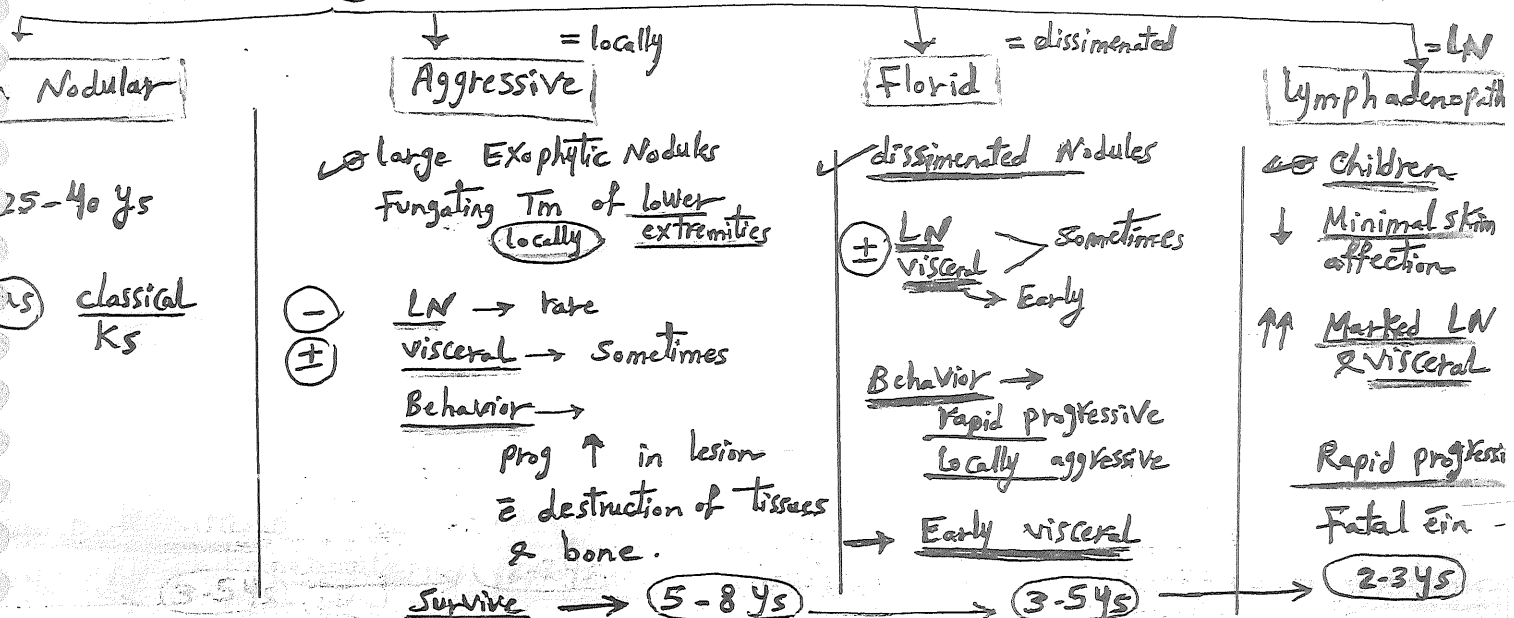 Nodular
25-40 ys
classical
Ks
= locally
Aggressive
large Exophytic Nodules
Fungating Tm of lower
(locally) extremities
(-) LN → rare
(±) visceral → sometimes
Behavior →
prog ↑ in lesion
c̄ destruction of tissues
& bone.
Survive → (5-8 ys)
= dissimenated
Florid
dissimenated Nodules
(±) LN
visceral
sometimes
→ Early
Behavior →
rapid progressive
locally aggressive
→ Early visceral
(3-5 ys) →
= LN
Lymphadenopath
Children
↓ Minimal skin
affection
↑↑ Marked LN
& visceral
Rapid progressi
Fatal ēin -
(2-3 ys)
(3-5 ys)